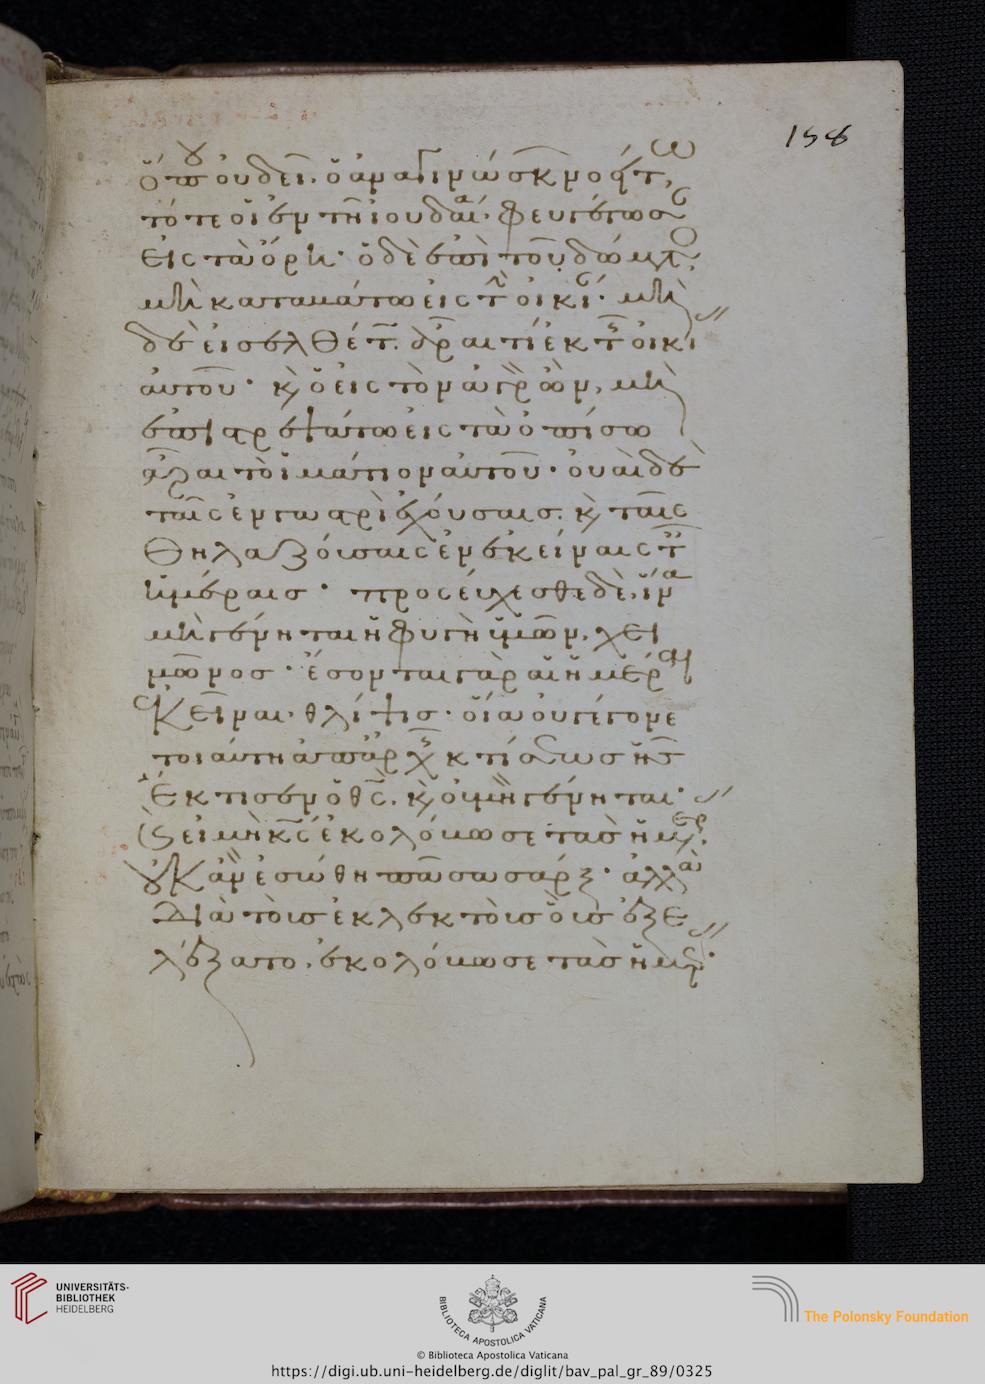 158
ὅπου οὐ δεῖ· ὁ ἀναγινώσκων νοείτω
τότε οἱ ἐν τῆ ἰουδαία· φευγέτωσαν
εἰς τὰ ὄρη· ὁ δὲ ἐπὶ τοῦ δώματος
μὴ καταβάτω εἰς τὴν οἰκίαν· μὴ
δὲ εἰσελθέτω ἆραι τι ἐκ τῆς οἰκίας
αὐτοῦ· καὶ ὁ εἰς τὸν ἀγρὸν ὢν, μὴ
ἐπιστρεψάτω εἰς τὰ ὀπίσω
ἆραι τὸ ἱμάτιον αὐτοῦ· οὐαὶ δὲ
ταῖς ἐν γαστρὶ ἐχούσαις· καὶ ταῖς
θηλαζούσαις ἐν ἐκείναις ταῖς
ἡμέραις· προσεύχεσθε δὲ, ἵνα
μὴ γένηται ἡ φυγὴ ὑμῶν, χει
μῶνος· ἔσονται γὰρ αἱ ἡμέραι
ἐκεῖναι· θλίψις· οἵα οὐ γέγονε
τοιαύτη ἀπ' ἀρχῆς κτίσεως ἧς
ἔκτισεν ὁ θς· καὶ οὐ μὴ γένηται·
καὶ εἰ μὴ κς ἐκολόβωσε τὰς ἡμέρας·
οὐκ ἂν ἐσώθη πᾶσα σάρξ· ἀλλὰ
διὰ τοὺς ἐκλεκτοὺς οὓς ἐξε
λέξατο, ἐκολόβωσε τὰς ἡμέρας·
UNIVERSITÄTS-
BIBLIOTHEK
HEIDELBERG
BIBLIOTECA APOSTOLICA VATICANA
The Polonsky Foundation
© Biblioteca Apostolica Vaticana
https://digi.ub.uni-heidelberg.de/diglit/bav_pal_gr_89/0325